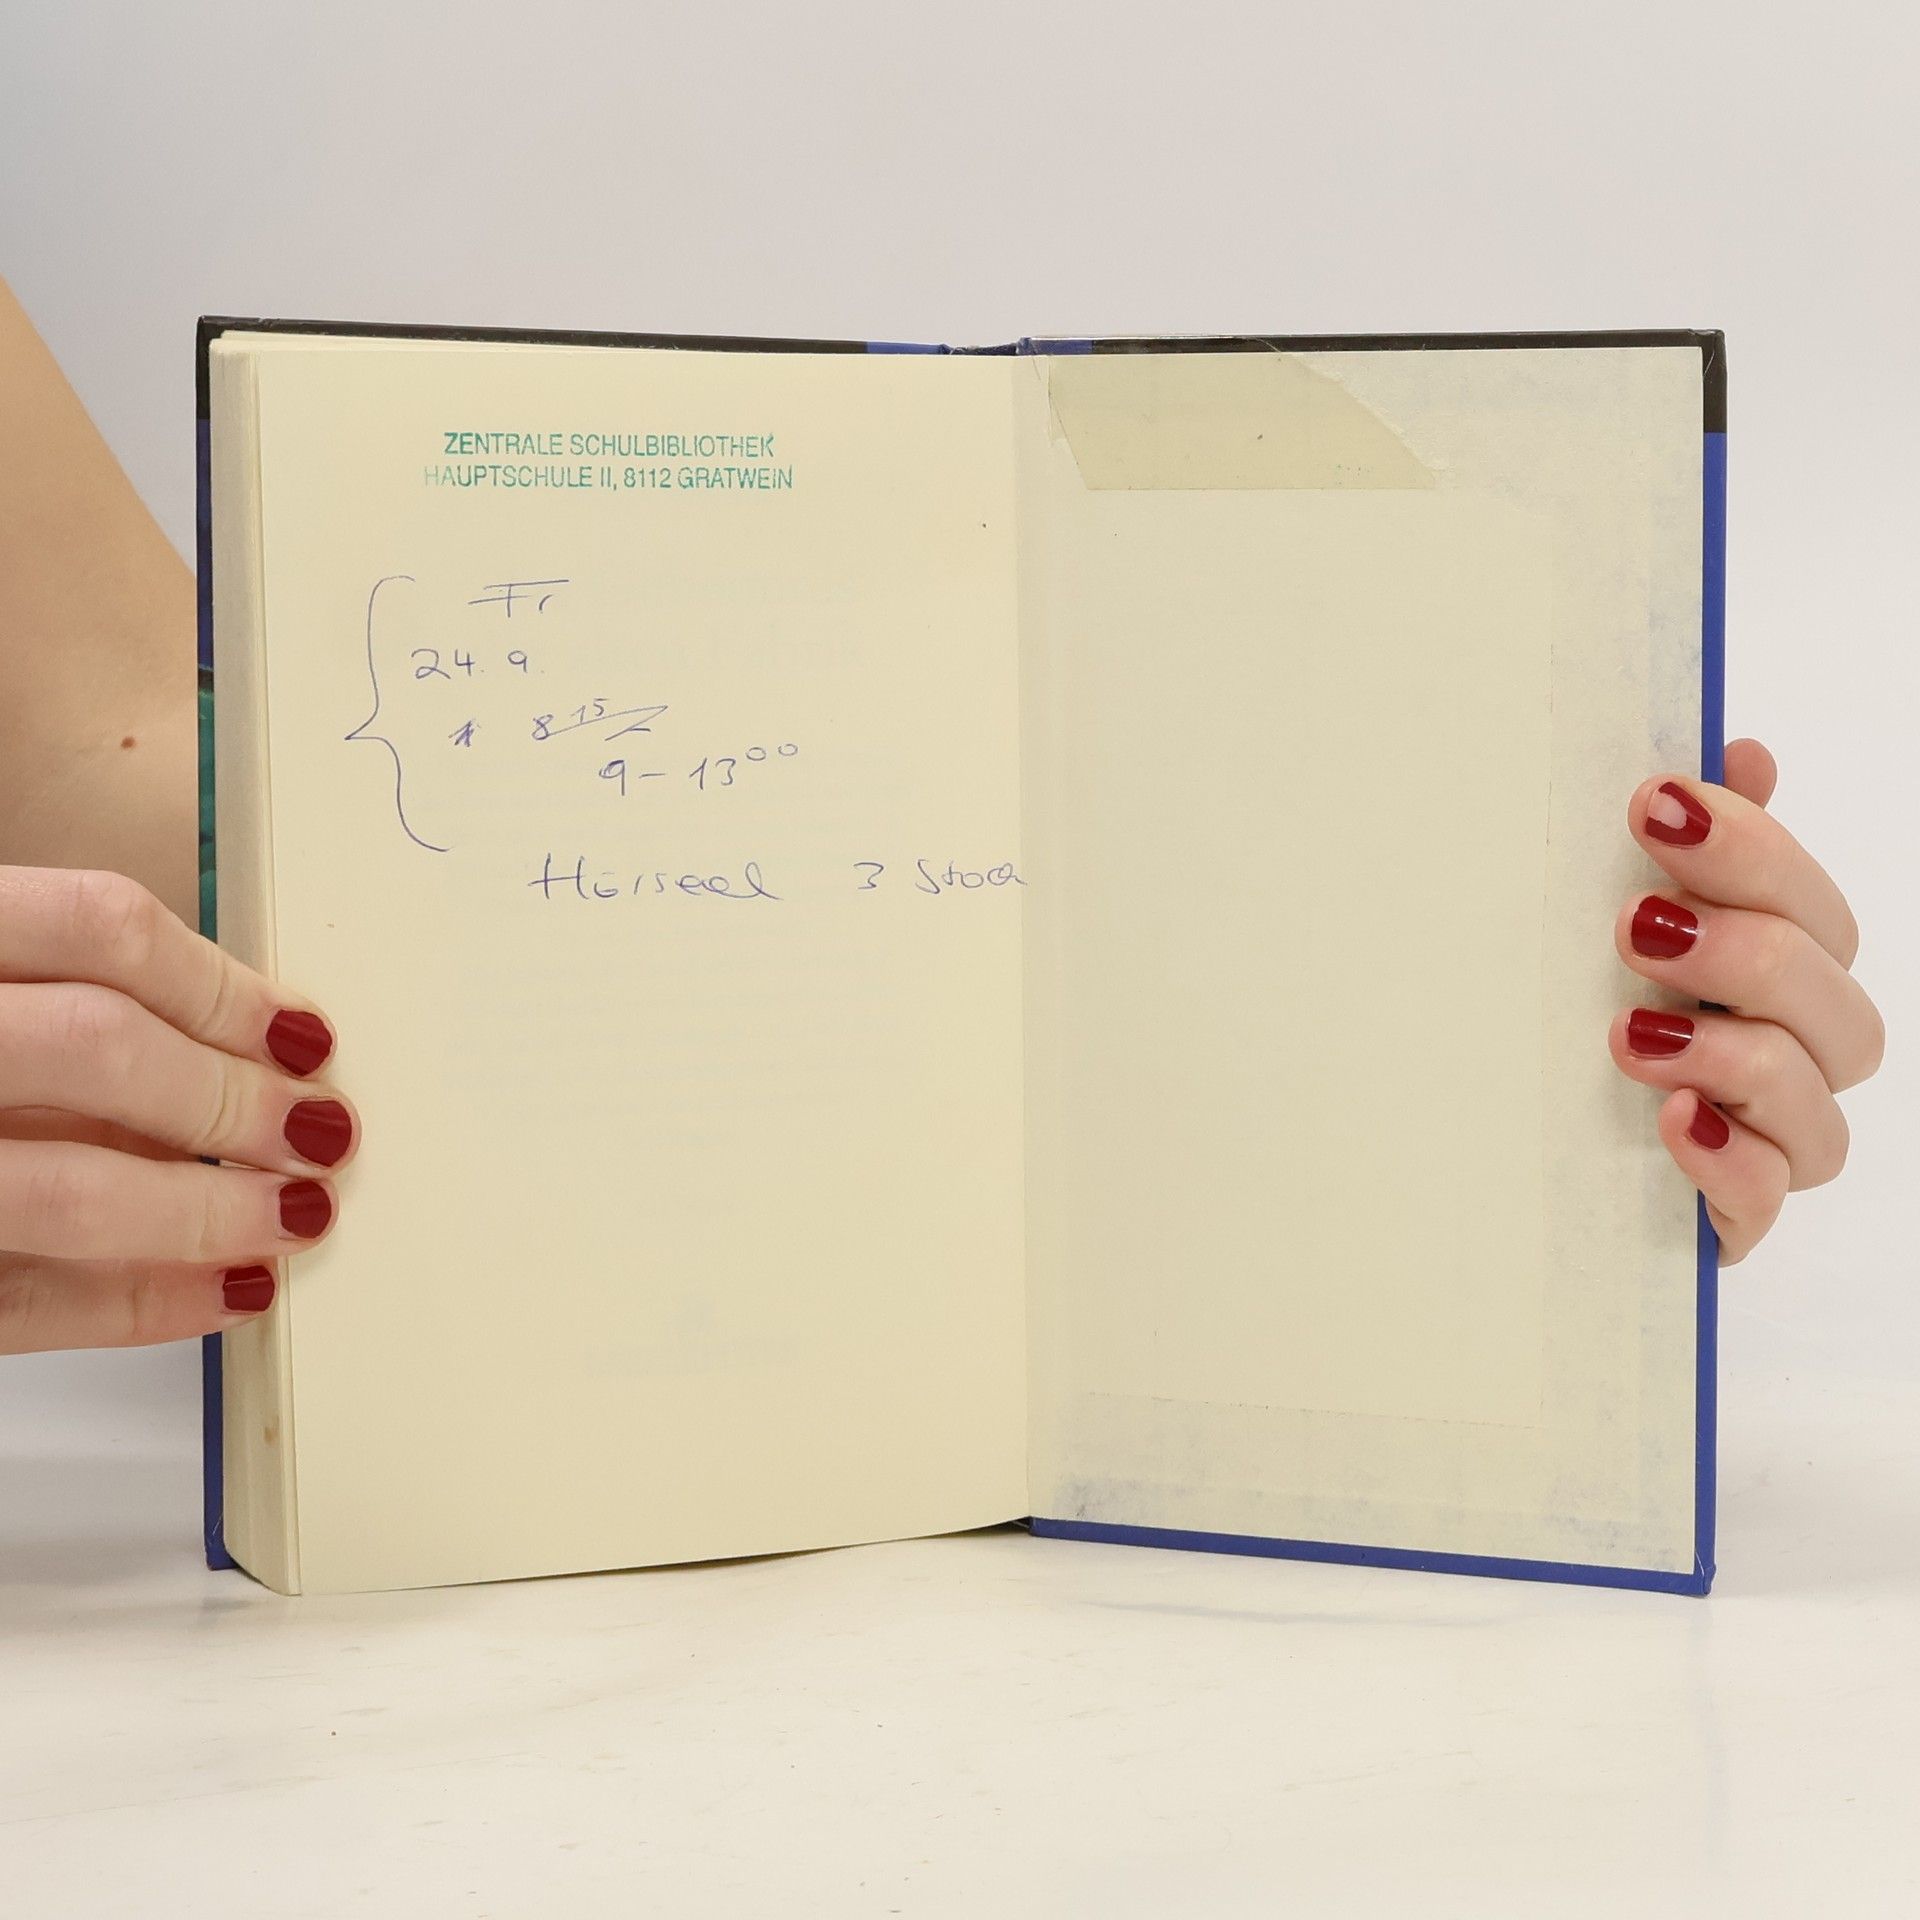 ZENTRALE SCHULBIBLIOTHEK
HAUPTSCHULE II, 8112 GRATWEIN
Fr
24. 9.
8 15
9 - 13 00
Hörsaal 3 Stock